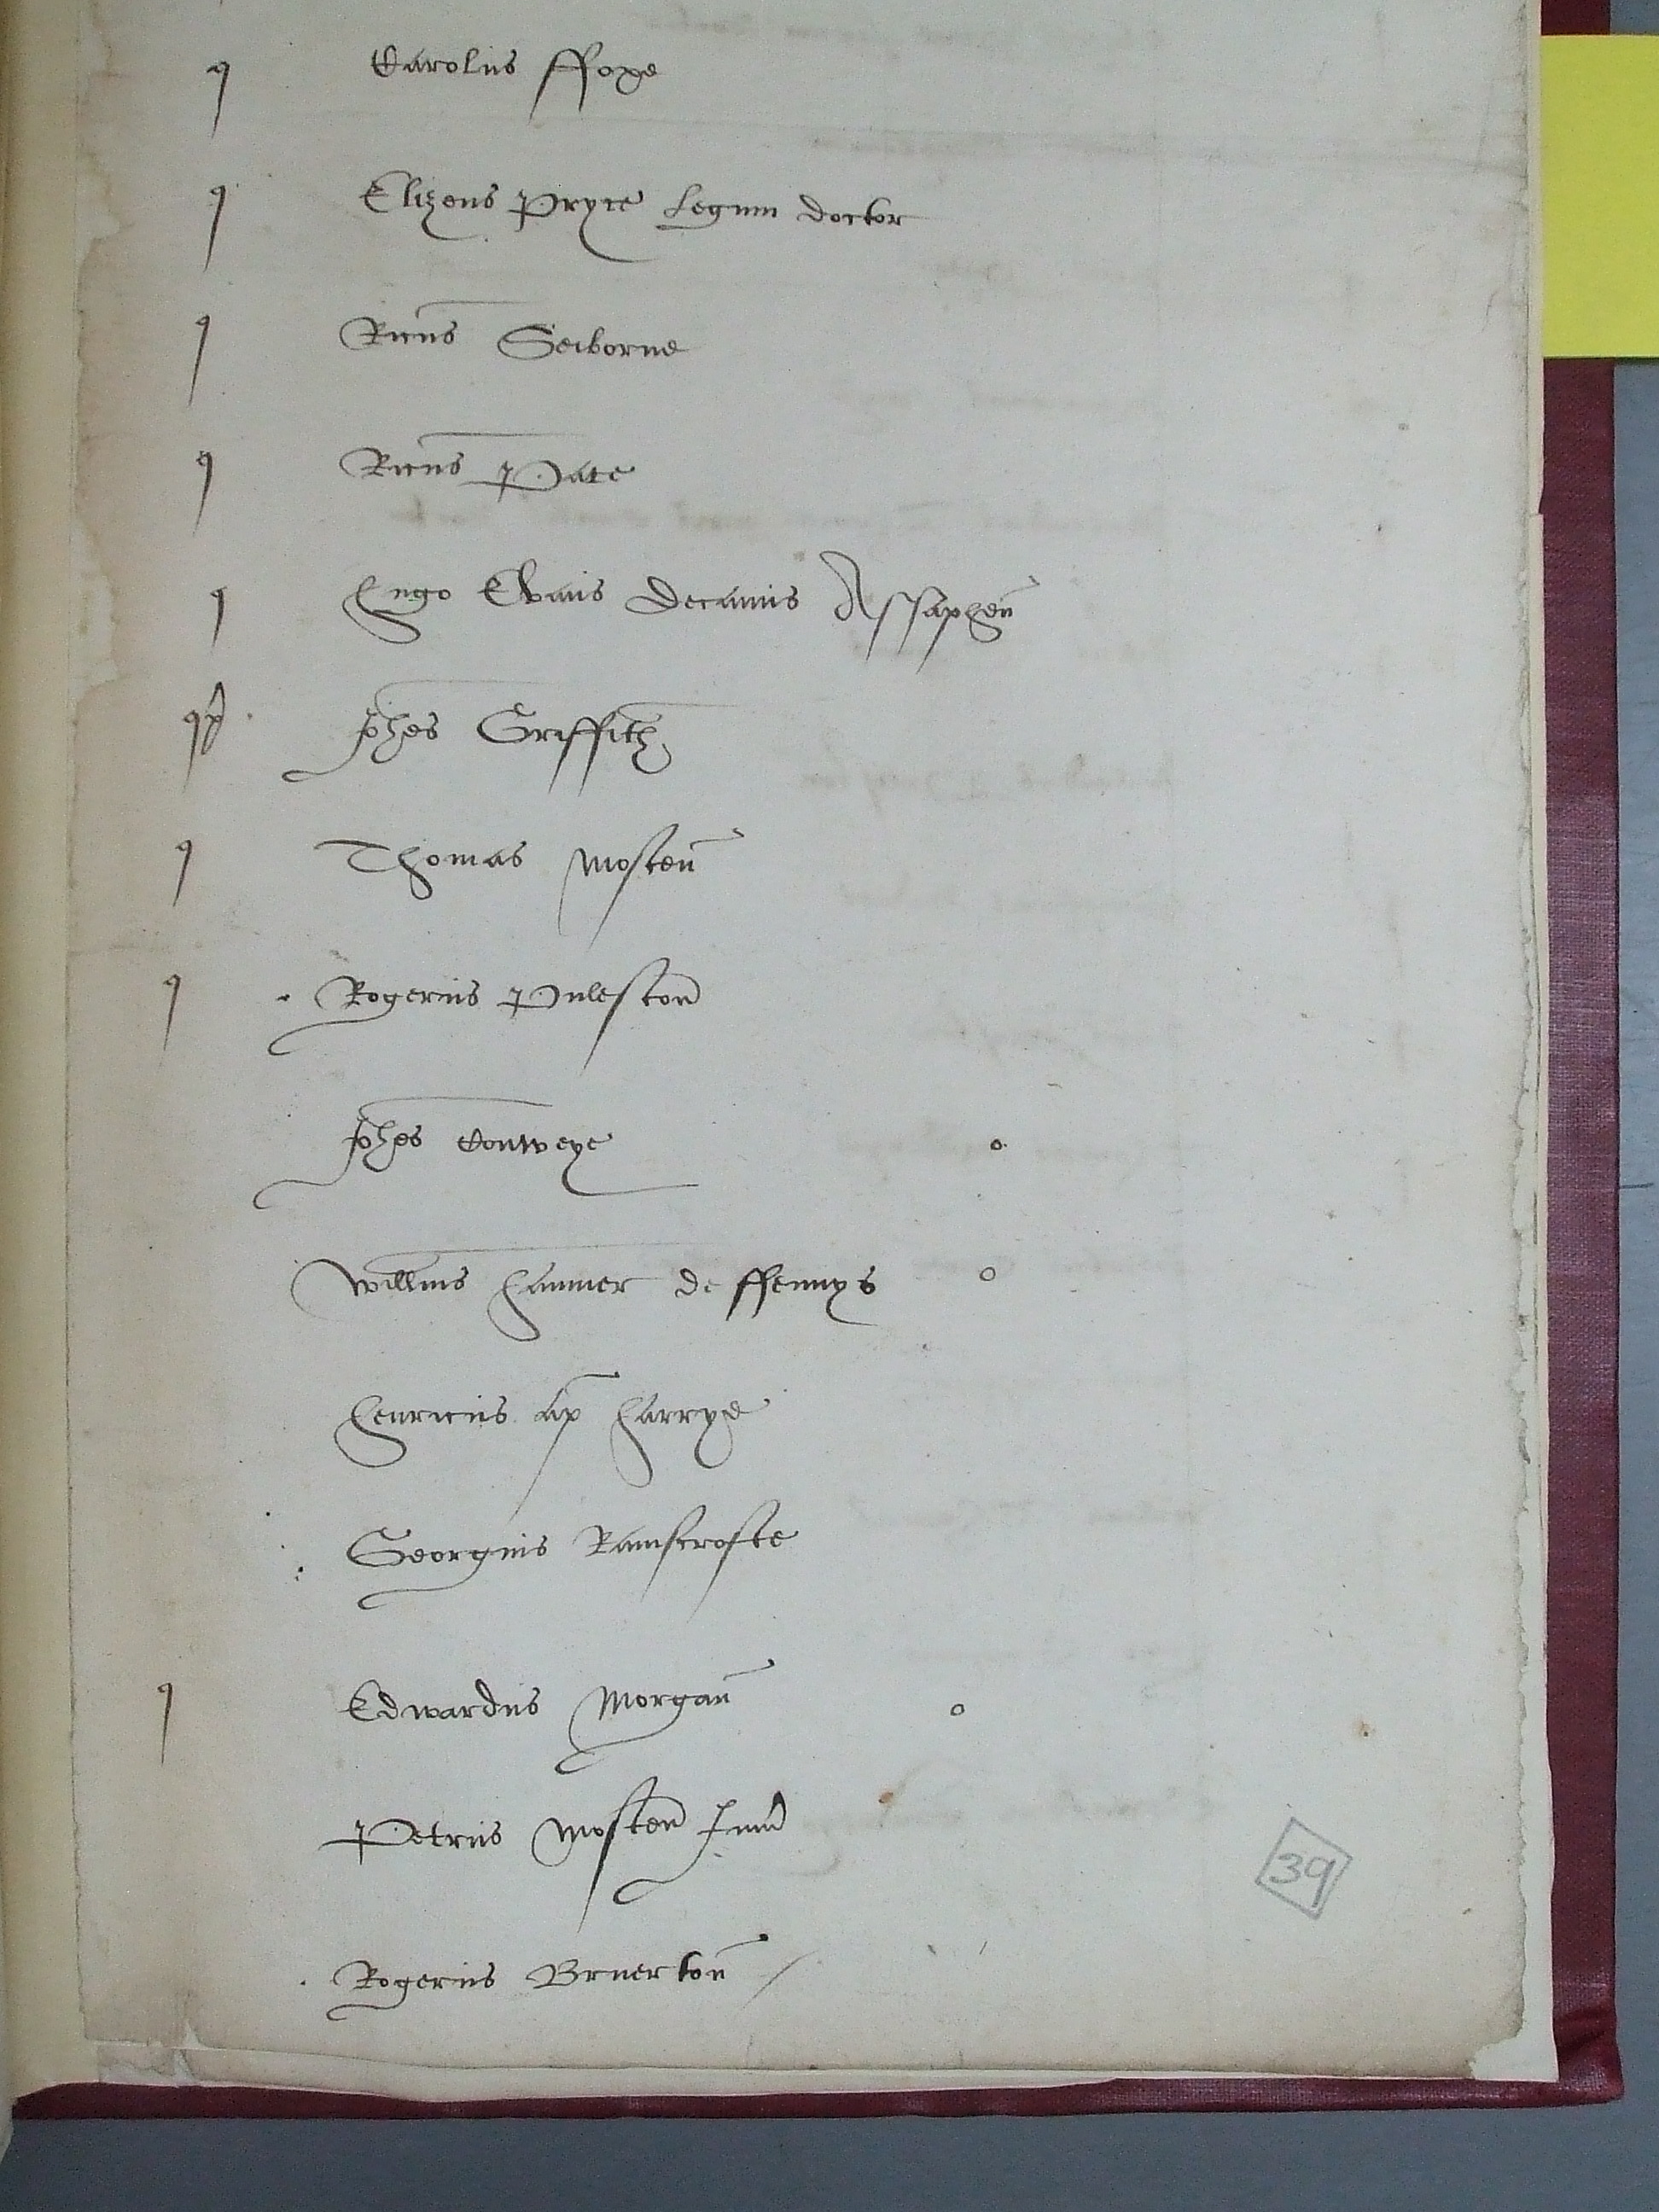 q Carolus ffoxe
q Elizeus Pryce Legum doctor
q Ricus Seiborne
q Ricus Pate
q Hugo Evans Decanus Assaphen
qr Johes Griffith
q Thomas Mosten
q Rogerius Puleston
Johes Conweye o
Willmus Hanmer de ffennys o
Henricus ap Harrye
Georgius Ramscrofte
q Edwardus Morgan o
Petrus Mosten Jun
Rogerius Bruerton
39